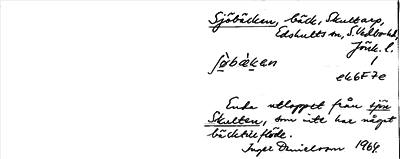 Sjöbäcken, bäck, Skultarp,
Edshults sn, S. Vedbo hd,
Jönk. l.
ek6F7e
Enda utloppet från sjön
Skulten, som inte har något
bäcktillflöde.
Inger Danielsson 1964.